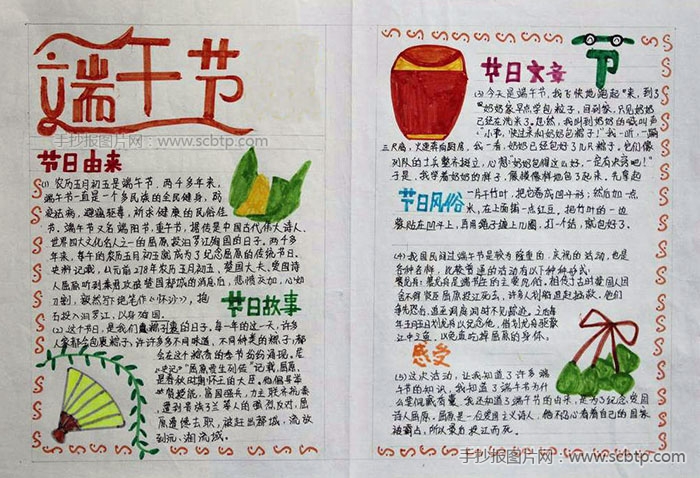 端午节
手抄报图片网：www.scbtp.com
节日由来
(1) 农历五月初五是端午节，两千多年来，
端午节一直是一个多民族的全民健身，防
疫祛病，避瘟驱毒，祈求健康的民俗佳
节，端午节又名端阳节，重午节，据传是中国古代伟大诗人、
世界四大文化名人之一的屈原投汨罗江殉国的日子。两千多
年来，每年的农历五月初五就成为了纪念屈原的传统节日。
史料记载，从元前278年农历五月初五，楚国大夫、爱国诗
人屈原听到秦军攻破楚国都城的消息后，悲愤交加，心如
刀割，毅然写下绝笔作《怀沙》，抱
石投入汨罗江，以身殉国。
节日故事
(2) 这个节日，是我们包粽子的日子，每一年的这一天，许多
人家都会包裹粽子，许许多多不同味道，不同种类的粽子，都
会在这个粽香的季节纷纷涌现。
史记》"屈原贾生列传"记载，屈原，
是春秋时期怀王的大臣。他倡导举
贤授能，富国强兵，力主联齐抗秦
，遭到贵族子兰等人的强烈反对，屈
原遭馋去职，被赶出都城，流放
到沅、湘流域。
节
节日文章
(3) 今天是端午节，我飞快地跑起来，到了
奶奶家早点学包粽子，回到家，只见奶奶
已经在洗米了。忽然，我叫到奶奶的喊叫声
"小乖，快过来和奶奶包粽子！"我一听，一蹦
三尺高，火速奔向厨房，我一看，奶奶已经包好了几只粽子。它们像
列队的士兵整齐树立，心想"奶奶包得这么好，一定有决巧吧！"
于是，我学着奶奶的样子，有模有样地包了起来，先拿起
一片干竹叶，把它卷成凹斗形，然后加一点
米，在上面摘一点红豆，把竹叶的一边
紧贴在凹斗上，再用绳子绕上几圈，打一个结，就包好了。
节日风俗
(4) 我国民间过端午节是较为隆重的，庆祝的活动，也是
各种各样，比较普通的活动有以下种种形式：
赛龙舟：赛龙舟是端午节的主要风俗，相传古时楚国人因
舍不得贤臣屈原投江死去，许多人划船追赶拯救，他们
争先恐后，追至洞庭湖时不见踪迹，之后每
年五月五日划龙舟以纪念他，借划龙舟驱散
江中之鱼，以免鱼吃掉屈原的身体。
感受
(5) 这次活动，让我知道了许多端
午节的知识，我知道了端午节为什
么要佩戴香囊，我还知道了端午节的由来，是为了纪念爱国
诗人屈原，屈原是一位爱国主义诗人，他不忍心看着自己的国家
被霸占，所以最后投江而死。
手抄报图片网：www.scbtp.com